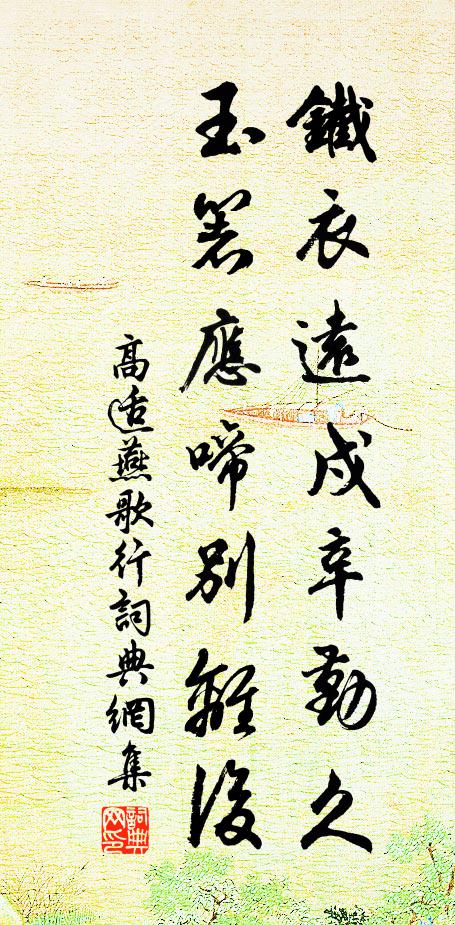 鐵衣遠戍辛勤久
玉箸應啼別離後
高適燕歌行詞典網集
詞典網印